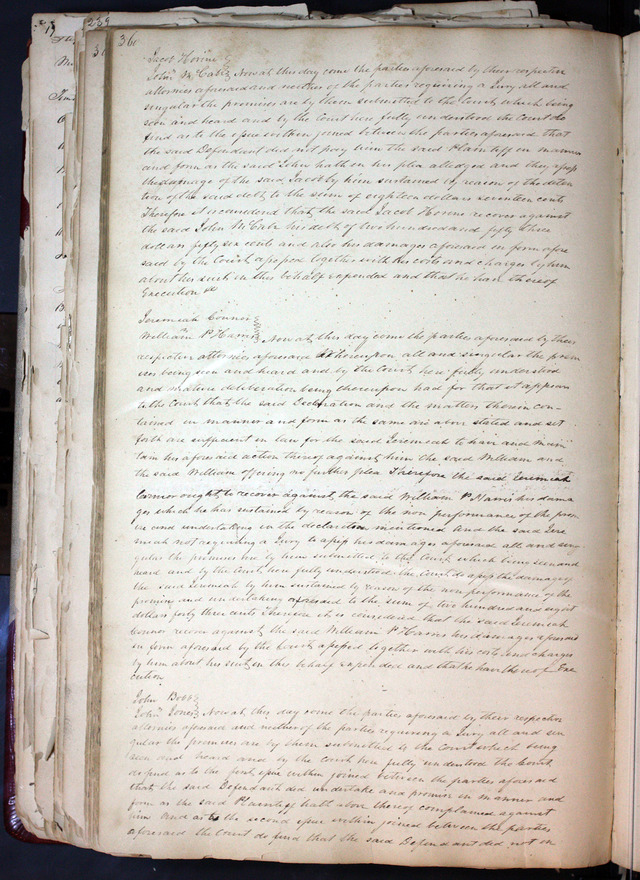 239
36
Jacob Horine
John McCabe Now at this day come the parties aforesaid by their respective
attornies aforesaid and neither of the parties requiring a Jury all and
singular the premises are by them submitted to the Court which being
seen and heard and by the Court here fully understood the Court do
find as to the issue within joined between the parties aforesaid that
the said Defendant did not pay him the said Plaintiff in manner
and form as the said John hath in his plea alledged and they assess
the damage of the said Jacob by him sustained by reason of the deten
tion of the said debt to the sum of eighteen dollars seventeen cents
Therefore it is considered that the said Jacob Horine recover against
the said John McCabe his debt of two hundred and fifty three
dollars fifty six cents and also his damages aforesaid in form afore
said by the Court assessed together with his costs and charges by him
about his suit in this behalf expended and that he have thereof
Execution &c
Jeremiah Connor
William P Harris Now at this day come the parties aforesaid by their
respective attornies aforesaid Whereupon all and singular the prem
ises being seen and heard and by the Court here fully understood
and mature deliberation being thereupon had for that it appears
to the Court that the said Declaration and the matters therein con-
tained in manner and form as the same are above stated and set
forth are sufficient in law for the said Jeremiah to have and main
tain his aforesaid action thereof against him the said William and
the said William offering no further plea Therefore the said Jeremiah
Connor ought to recover against the said William P Harris his dama
ges which he has sustained by reason of the non performance of the prom
ise and undertaking in the declaration mentioned And the said Jere
miah not requiring a Jury to assess his damages aforesaid all and sing
ular the premises are by him submitted to the Court which being seen and
heard and by the Court here fully understood the Court do assess the damages of
the said Jeremiah by him sustained by reason of the non performance of the
promise and undertaking aforesaid to the sum of two hundred and eight
dollars forty three cents Therefore it is considered that the said Jeremiah
Connor recover against the said William P Harris his damages aforesaid
in form aforesaid by the Court assessed together with his costs and charges
by him about his suit in this behalf expended and that he have thereof Exe
cution
John Bobb
John Jones Now at this day come the parties aforesaid by their respective
attornies aforesaid and neither of the parties requiring a Jury all and sin
gular the premises are by them submitted to the Court which being
seen and heard and by the Court here fully understood the Court
do find as to the first issue within joined between the parties aforesaid
that the said Defendant did undertake and promise in manner and
form as the said Plaintiff hath above thereof complained against
him And as to the second issue within joined between the parties
aforesaid the Court do find that the said Defendant did not in